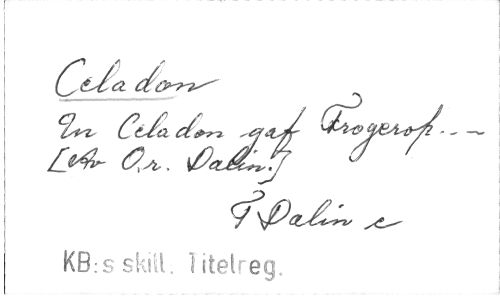 Celadon
En Celadon gaf Frogerop...
[Av O.v. Dalin.]
F Dalin c
KB:s skill. Titelreg.